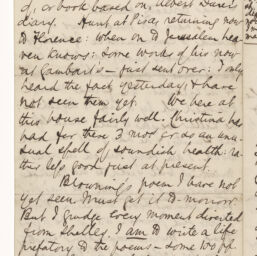 of, or book based on, Albert Durer's
diary. Hunt at Pisa, returning now
to Florence: when on to Jerusalem hea-
ven knows: some works of his now
at Gambart's – just sent over: I only
heard the fact yesterday, & have
not seen them yet. We here at
this house fairly well. Christina has
had for these 3 mos or so an unu-
sual spell of soundish health: ra-
ther less good just at present.
Browning's poem I have not
yet seen. Must get it to-morrow.
But I grudge every moment diverted
from Shelley. I am to write a life
prefatory to the poems – some 100 pp.